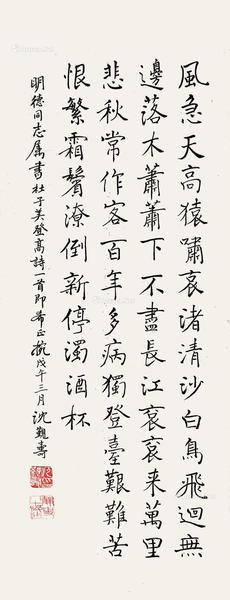 風急天高猿嘯哀渚清沙白鳥飛迴無
邊落木蕭蕭下不盡長江衮衮来萬里
悲秋常作客百年多病獨登臺艱難苦
恨繁霜鬢潦倒新停濁酒杯
明德同志属書杜子美登高詩一首即希正捥戊午三月沈覲壽